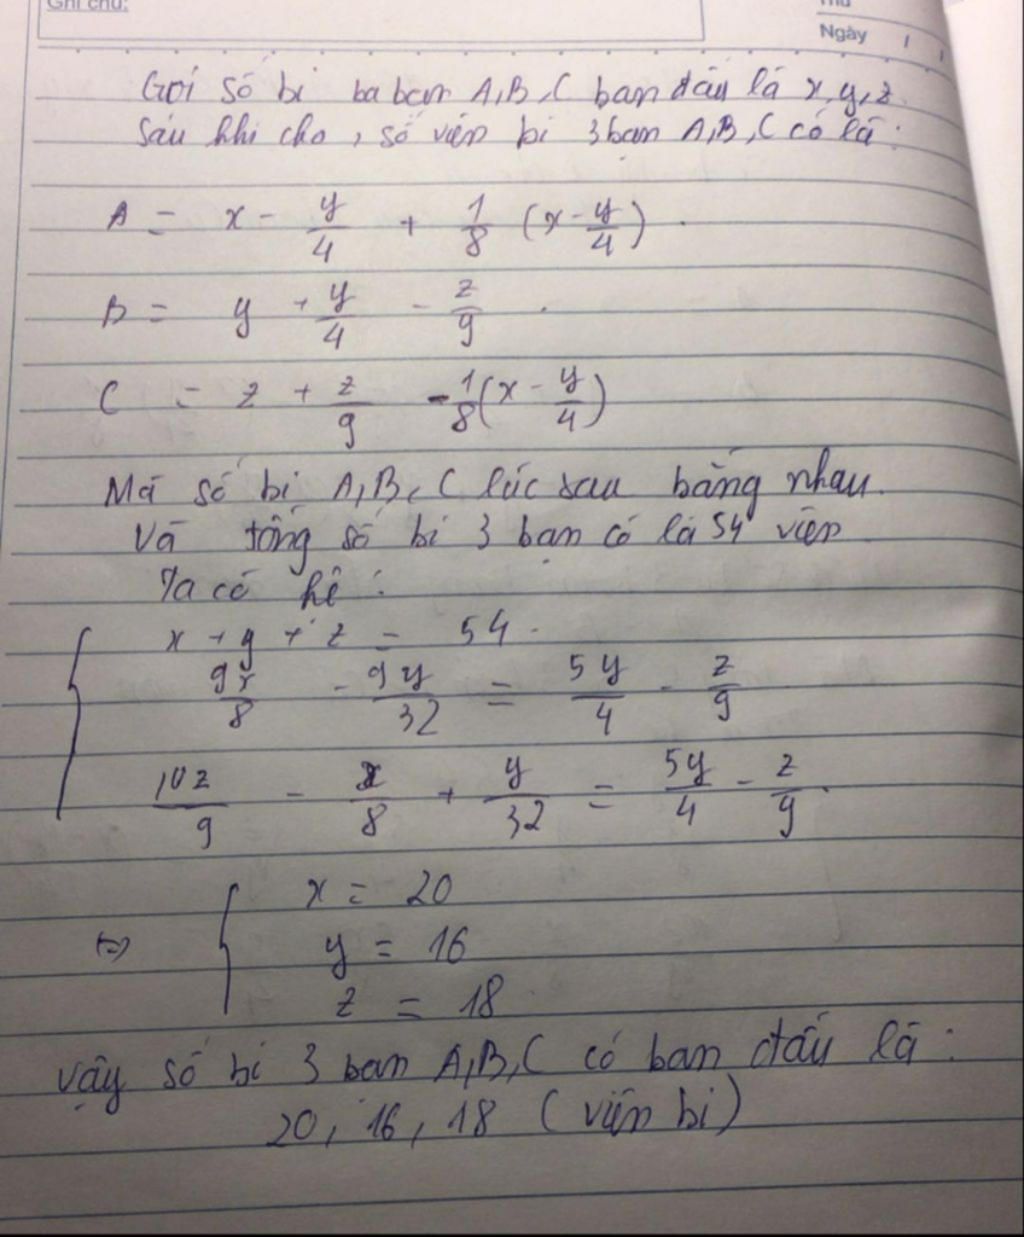 Ghi chú:
Thứ
Ngày / /
Gọi số bi ba bạn A,B,C ban đầu là x,y,z
Sau khi cho, số viên bi 3 bạn A,B,C có là:
A = x - y/4 + 1/8 (x - y/4)
B = y + y/4 - z/9
C = z + z/9 - 1/8 (x - y/4)
Mà số bi A,B,C lúc sau bằng nhau.
Và tổng số bi 3 bạn có là 54 viên
Ta có hệ:
{ x + y + z = 54
9x/8 - 9y/32 = 5y/4 - z/9
10z/9 - x/8 + y/32 = 5y/4 - z/9
⇔ { x = 20
y = 16
z = 18
Vậy số bi 3 bạn A,B,C có ban đầu là:
20, 16, 18 (viên bi)